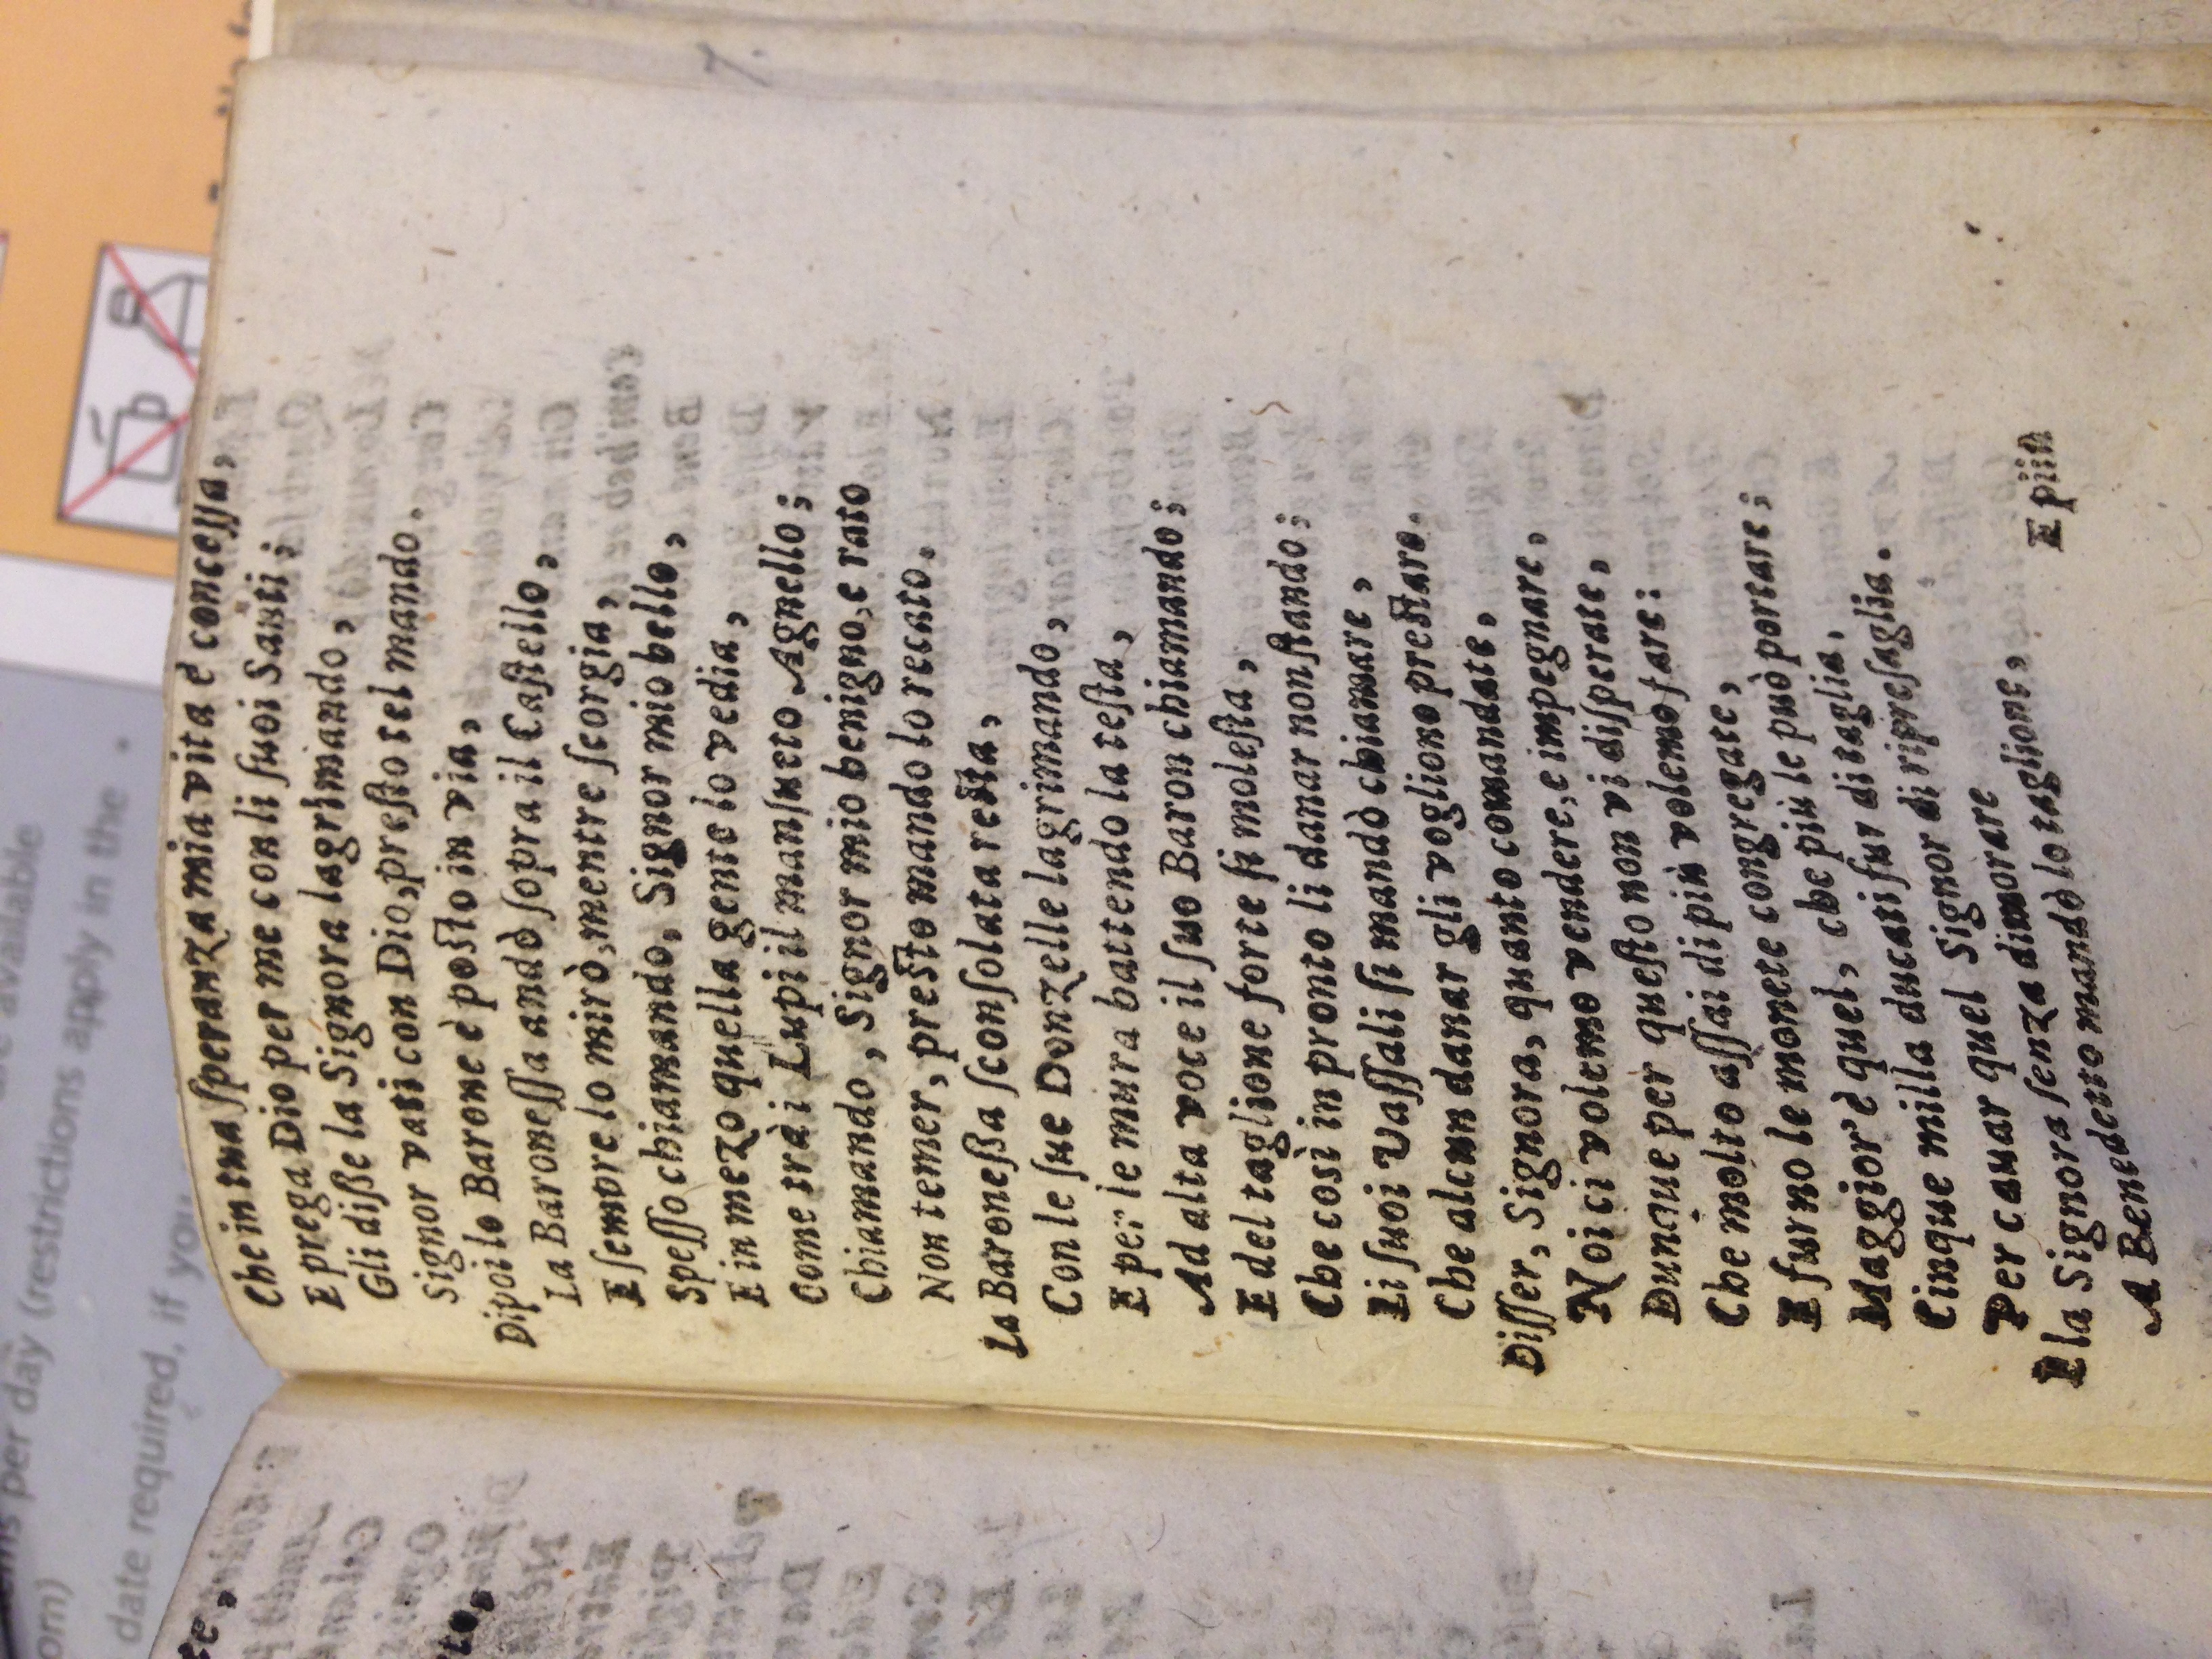 Che in tua ſperanza mia vita è conceſſa,
E prega Dio per me con li ſuoi Santi;
Gli diße la Signora lagrimando,
Signor vati con Dio, preſto tel mando.
Dipoi lo Barone è poſto in via,
La Baroneſſa andò ſopra il Caſtello,
E ſempre lo mirò, mentre ſcorgia,
Speſſo chiamando, Signor mio bello,
E in mezo quella gente lo vedia,
Come trà i Lupi il manſueto Agnello;
Chiamando, Signor mio benigno, e rato
Non temer, preſto mando lo recato.
La Baroneßa ſconſolata reſta,
Con le ſue Donzelle lagrimando,
E per le mura battendo la teſta,
Ad alta voce il ſuo Baron chiamando;
E del taglione forte ſi moleſta,
Che così in pronto li danar non ſtando;
Li ſuoi Vaſſali ſi mandò chiamare,
Che alcun danar gli vogliono preſtare.
Diſſer, Signora, quanto comandate,
Noi ci volemo vendere, e impegnare,
Dunque per queſto non vi diſperate,
Che molto aſſai di più volemo fare:
E furno le monete congregate,
Maggior'è quel, che più le può portare;
Cinque milla ducati fur di taglia,
Per cauar quel Signor di ripreſaglia.
E la Signora ſenza dimorare
A Benedetto mandò lo taglione,
E piin
date required, if you
per day (restrictions apply in the
available